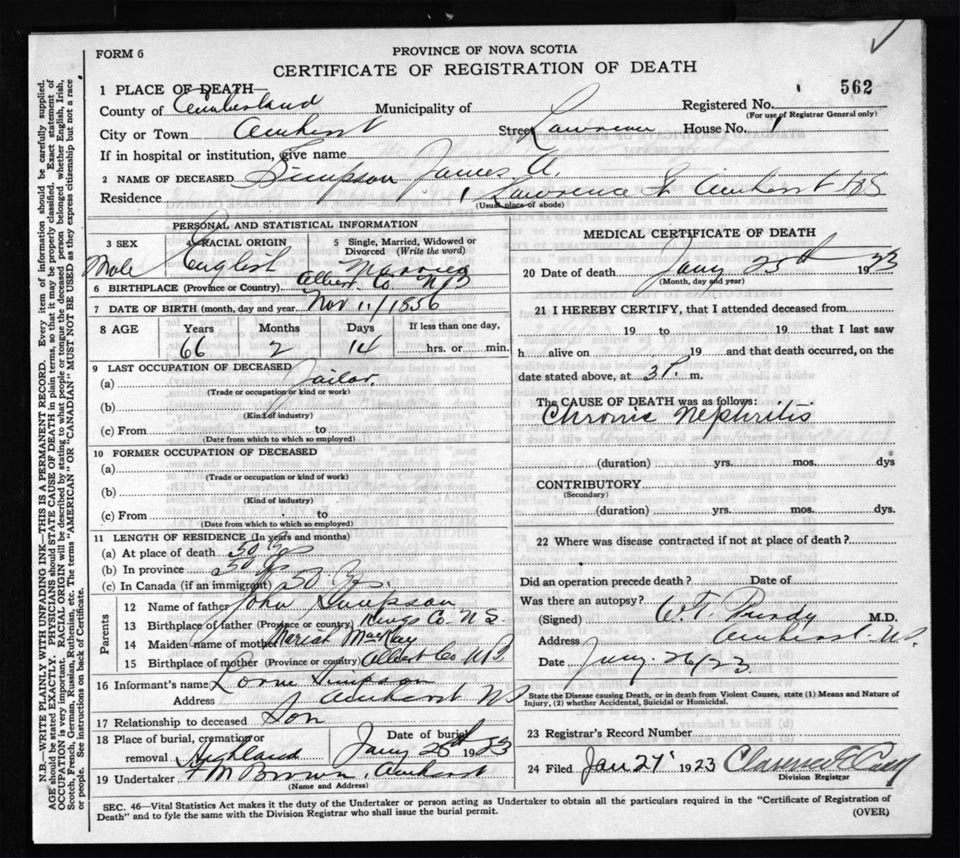 FORM 6
PROVINCE OF NOVA SCOTIA
CERTIFICATE OF REGISTRATION OF DEATH
562
1 PLACE OF DEATH—
County of Cumberland Municipality of Registered No.
(For use of Registrar General only)
City or Town Amherst Street Lawrence House No. 1
If in hospital or institution, give name
2 NAME OF DECEASED Simpson James A.
Residence 1 Lawrence St. Amherst N.S
(Usual place of abode)
PERSONAL AND STATISTICAL INFORMATION
3 SEX 4 RACIAL ORIGIN 5 Single, Married, Widowed or
Divorced (Write the word)
Male English Married
6 BIRTHPLACE (Province or Country) Albert Co NB
7 DATE OF BIRTH (month, day and year) Nov 11/1856
8 AGE Years Months Days If less than one day,
66 2 14 hrs. or min.
9 LAST OCCUPATION OF DECEASED
(a)
(Trade or occupation or kind or work)
(b)
(Kind of industry)
(c) From to
(Date from which to which so employed)
10 FORMER OCCUPATION OF DECEASED
(a)
(Trade or occupation or kind of work)
(b)
(Kind of industry)
(c) From to
(Date from which to which so employed)
11 LENGTH OF RESIDENCE (In years and months)
(a) At place of death 50 Ys
(b) In province 50 Ys
(c) In Canada (if an immigrant) 50 Ys.
Parents
12 Name of father John Simpson
13 Birthplace of father (Province or country) Kings Co. N S
14 Maiden name of mother MacKay
15 Birthplace of mother (Province or country) Albert Co NB
16 Informant's name Lorne Simpson
Address Amherst NS
17 Relationship to deceased Son
18 Place of burial, cremation or Date of burial
removal Highland Jany 1923
19 Undertaker F M Brown. Amherst
(Name and Address)
MEDICAL CERTIFICATE OF DEATH
20 Date of death Jany 25th 1923
(Month, day and year)
21 I HEREBY CERTIFY, that I attended deceased from
19 to 19 that I last saw
h alive on 19 and that death occurred, on the
date stated above, at 3 P. m.
The CAUSE OF DEATH was as follows:
Chronic Nephritis
(duration) yrs. mos. dys
CONTRIBUTORY
(Secondary)
(duration) yrs. mos. dys.
22 Where was disease contracted if not at place of death?
Did an operation precede death? Date of
Was there an autopsy?
(Signed) C. T. Purdy M.D.
Address Amherst N.S.
Date Jany. 26/23
State the Disease causing Death, or in death from Violent Causes, state (1) Means and Nature of
Injury, (2) whether Accidental, Suicidal or Homicidal.
23 Registrar's Record Number
24 Filed Jan 27 1923 Clarence
Division Registrar
SEC. 46—Vital Statistics Act makes it the duty of the Undertaker or person acting as Undertaker to obtain all the particulars required in the "Certificate of Registration of
Death" and to fyle the same with the Division Registrar who shall issue the burial permit.
(OVER)
N.B.—WRITE PLAINLY WITH UNFADING INK—THIS IS A PERMANENT RECORD. Every item of information should be carefully supplied.
AGE should be stated EXACTLY. PHYSICIANS should STATE CAUSE OF DEATH in plain terms, so that it may be properly classified. Exact statement of
OCCUPATION is very important. RACIAL ORIGIN will be described by stating to what people or tongue the deceased person belonged whether English, Irish,
Scotch, French, German, Russian, Ruthenian, etc. The terms "AMERICAN" OR "CANADIAN" MUST NOT BE USED as they express citizenship but not a race
or people. See instructions on back of Certificate.